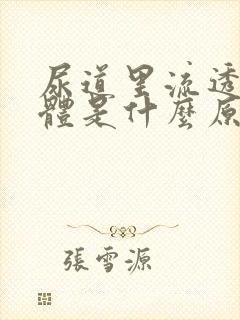 尿道里流透
體是什麼原
張雪源